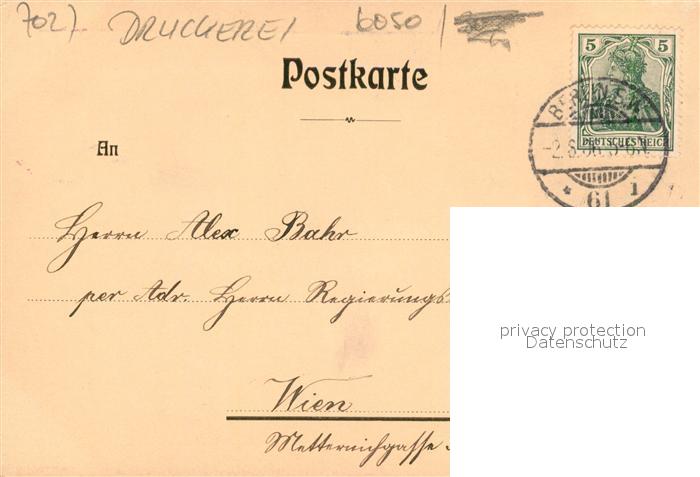 7027 DRUCKEREI 6050
5 5
DEUTSCHES REICH
BERLIN S.W.
-2.8.06.5-6N.
* 61 i
Postkarte
An
Herrn Alex Bahr
per Adr. Herrn Regierungs
Wien
Metternichgasse
privacy protection
Datenschutz